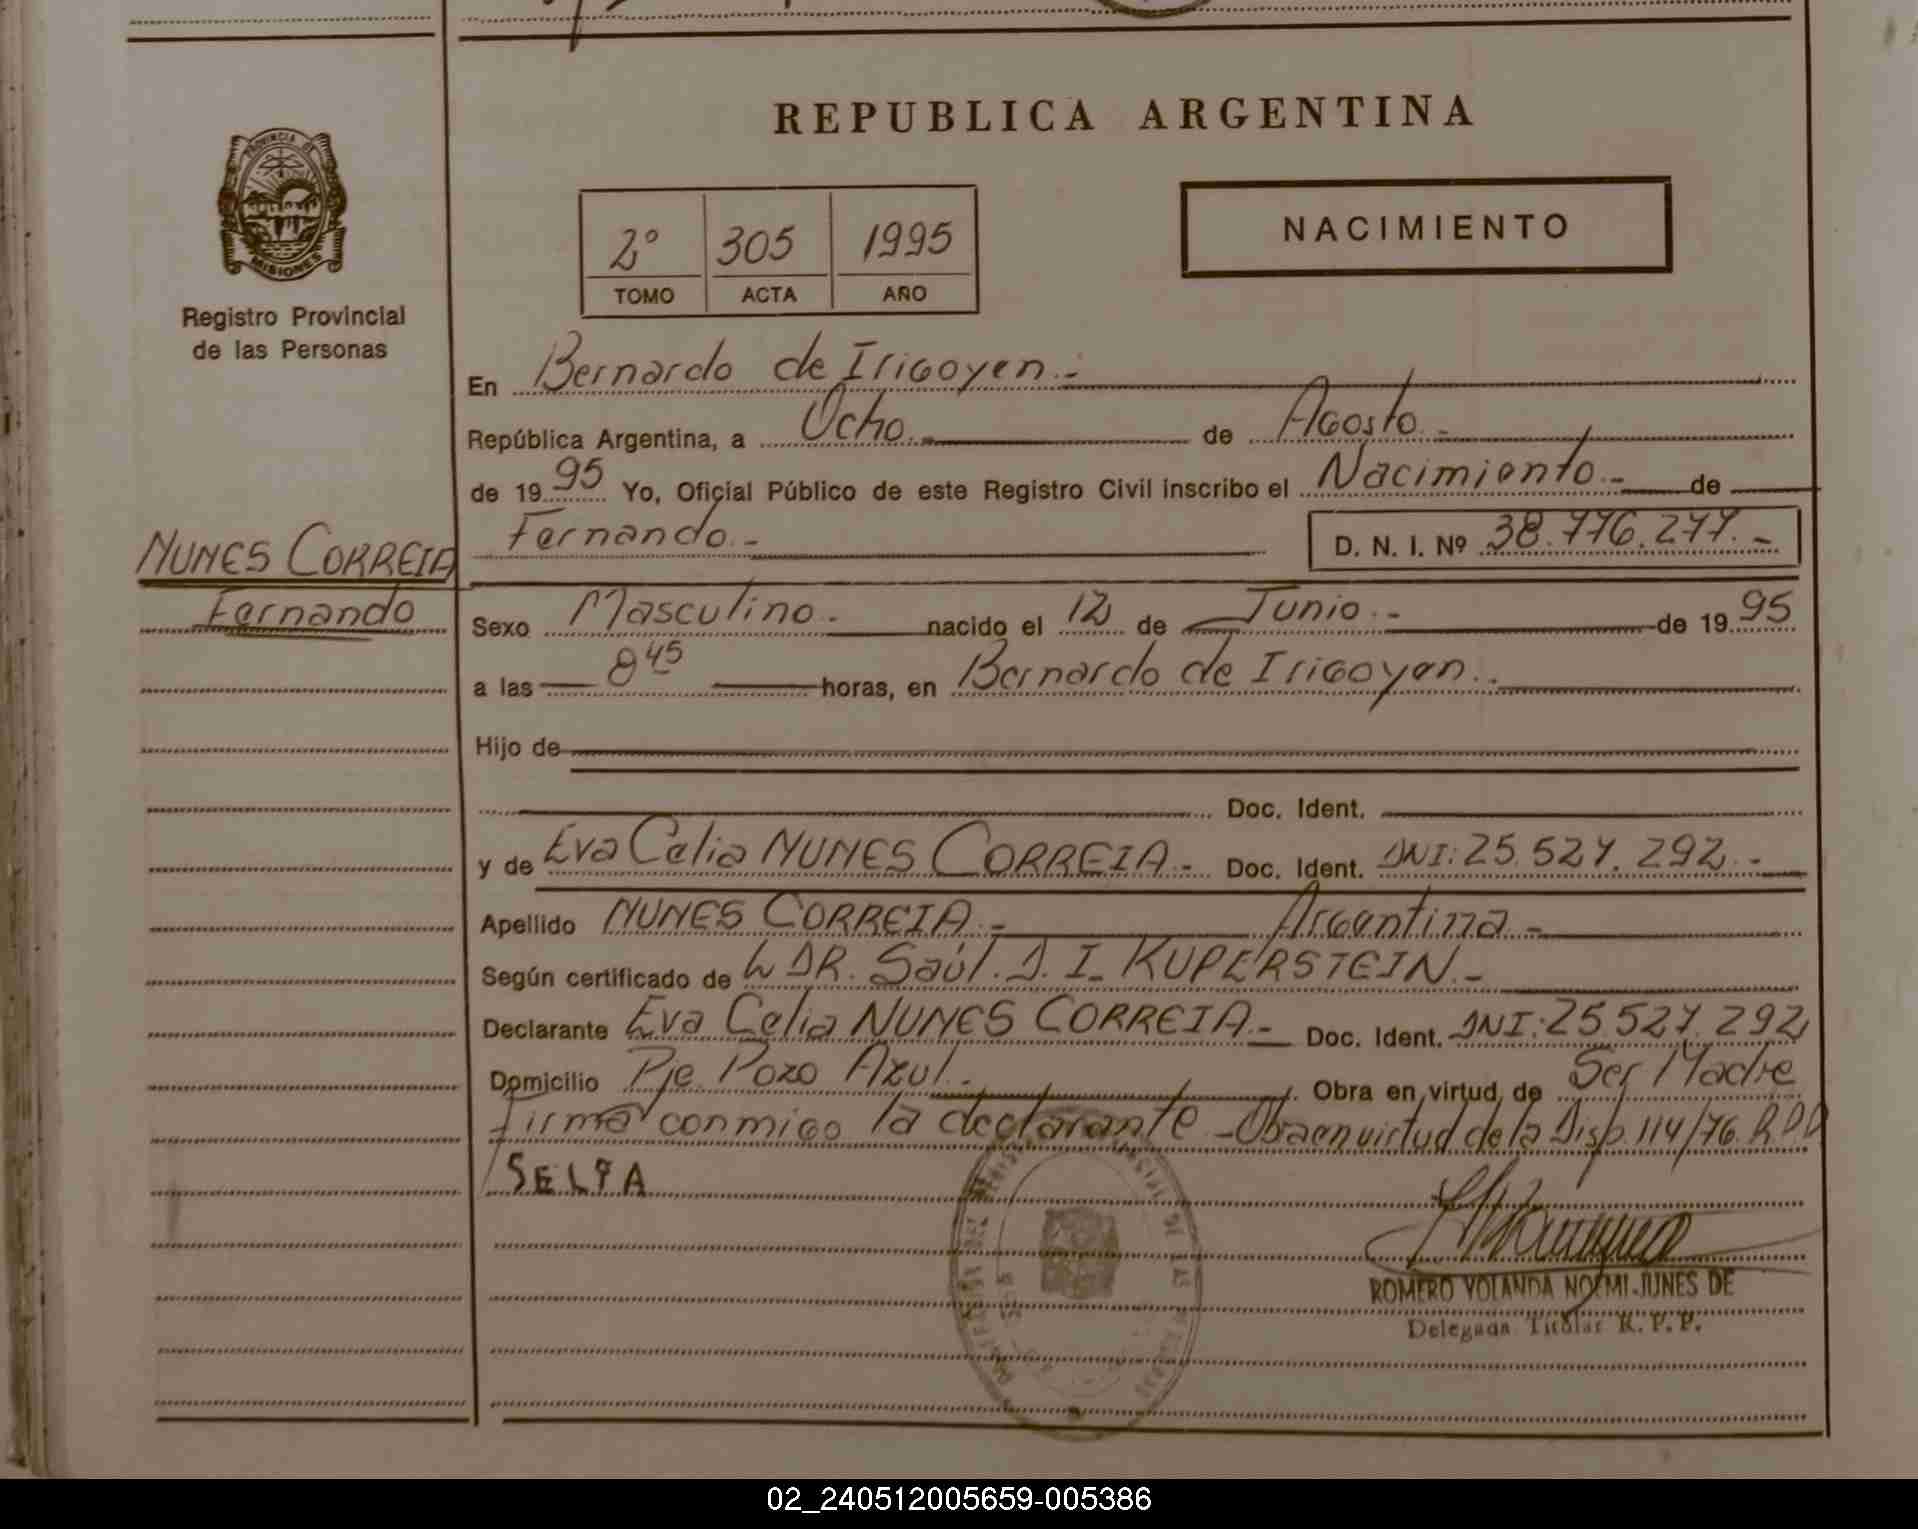 REPUBLICA ARGENTINA
PROVINCIA DE
MISIONES
Registro Provincial
de las Personas
2º 305 1995
TOMO ACTA AÑO
NACIMIENTO
En Bernardo de Irigoyen.-
República Argentina, a Ocho.- de Agosto.-
de 1995 Yo, Oficial Público de este Registro Civil inscribo el Nacimiento.- de
Fernando.- D. N. I. Nº 38.776.277.-
NUNES CORREIA
Fernando
Sexo Masculino.- nacido el 12 de Junio.- de 1995
a las 8 45 horas, en Bernardo de Irigoyen..
Hijo de
Doc. Ident.
y de Eva Celia NUNES CORREIA.- Doc. Ident. DNI: 25.527.292.-
Apellido NUNES CORREIA.- Argentina.-
Según certificado de DR. Saúl. D. I. KUPERSTEIN.-
Declarante Eva Celia NUNES CORREIA.- Doc. Ident. DNI: 25.527.292
Domicilio Pje Pozo Azul.- Obra en virtud de Ser Madre
Firma conmigo la declarante - Obra en virtud de la Disp. 114/76.
SELFA
ROMERO YOLANDA NOEMI JUNES DE
Delegada Titular R. P. P.
02_240512005659-005386